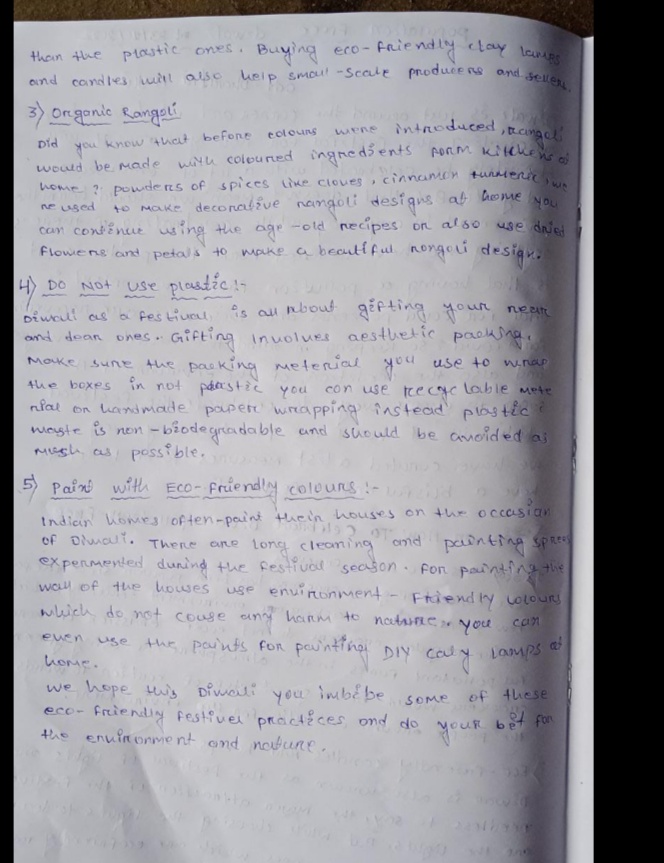 than the plastic ones. Buying eco-friendly clay lamps
and candles will also help small-scale producers and sellers.
3) Organic Rangoli
Did you know that before colours were introduced, rangoli
would be made with coloured ingredients form kitchens at
home? powders of spices like cloves, cinnamon turmeric, we
re used to make decorative rangoli designs at home you
can continue using the age-old recipes or also use dried
flowers and petals to make a beautiful rongoli design.
4) Do Not use plastic :-
Diwali as a festival, is all about gifting your near
and dear ones. Gifting involves aesthetic packing.
Make sure the packing meterial you use to wrap
the boxes in not plastic you can use recyclable mete
rial or handmade paper wrapping instead plastic
waste is non-biodegradable and should be avoided as
much as possible.
5) Paint with Eco-friendly colours :-
Indian homes often-paint their houses on the occasion
of Diwali. There are long cleaning and painting sprees
expermented during the festival season. for painting the
wall of the houses use environment-friendly colours
which do not couse any harm to nature. you can
even use the paints for painting DIY caly lamps at
home.
we hope this Diwali you imbibe some of these
eco-friendly festivel practices and do your bit for
the environment and nature.